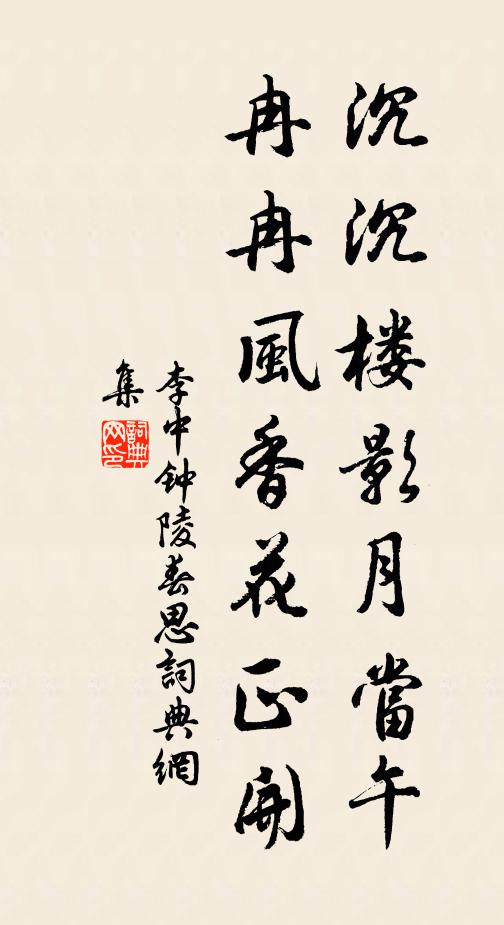 沉沉楼影月當午
冉冉風香花正開
李中钟陵春思詞典網
集
詞典
网印